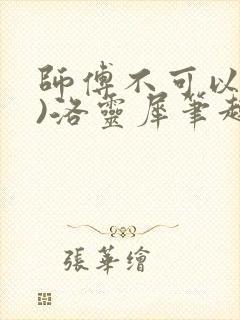 師傅不可以
)洛靈犀筆趣
張華繪